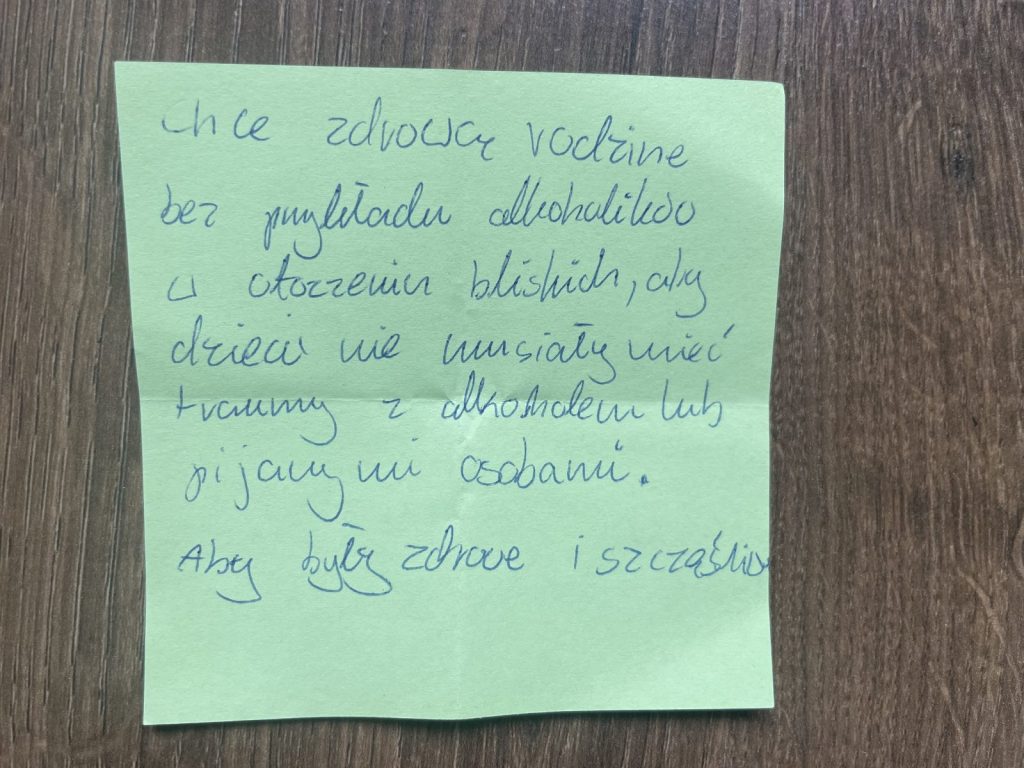 Chce zdrową rodzine
bez przykładu alkoholików
w otoczeniu bliskich, aby
dzieci nie musiały mieć
traumy z alkoholem lub
pijanymi osobami.
Aby były zdrowe i szcząśliwe